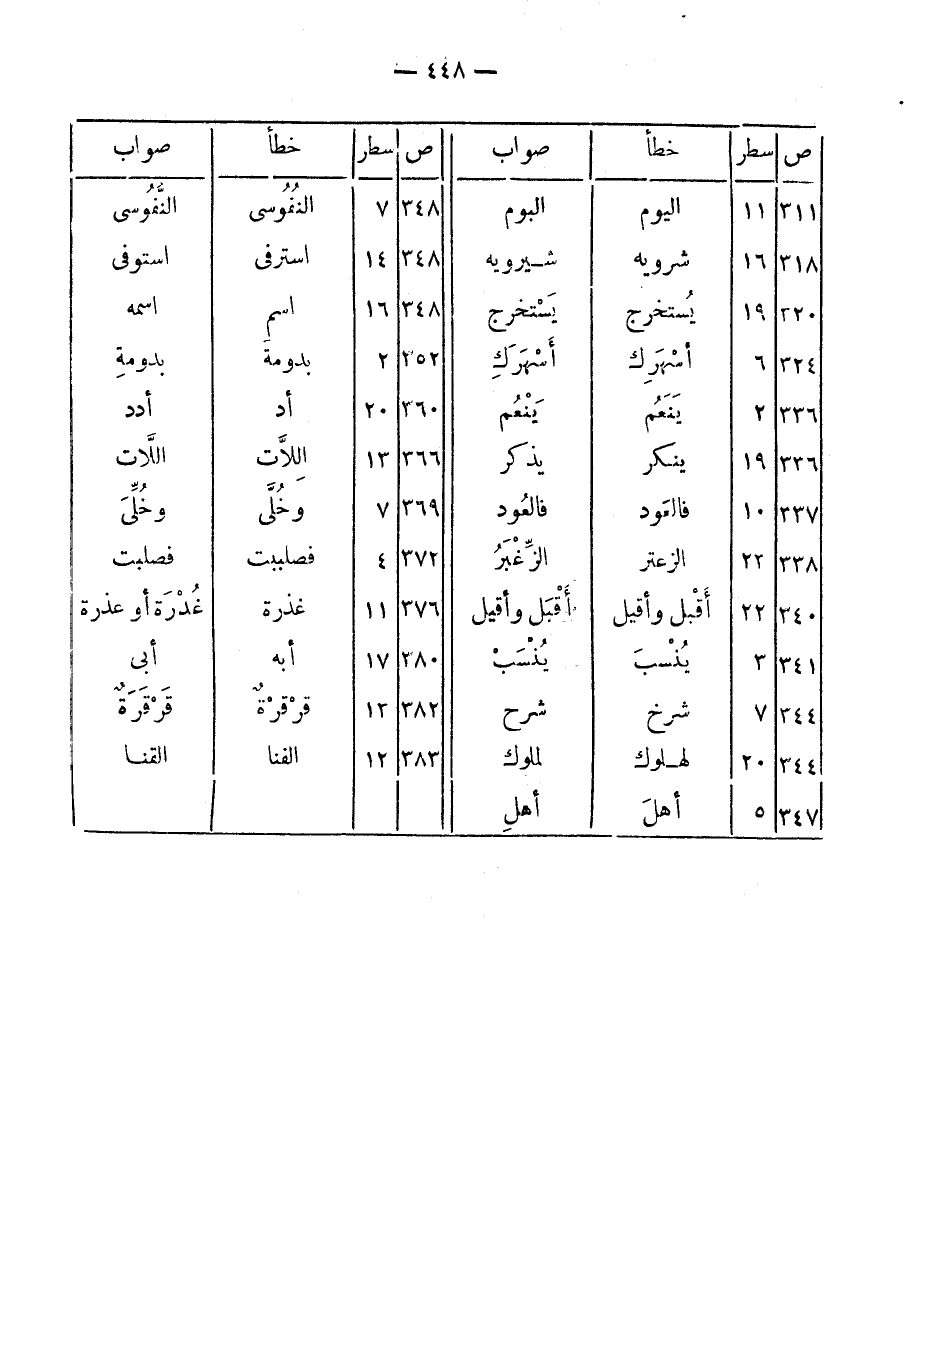 — ٤٤٨ —
ص سطر خطأ صواب ص سطر خطأ صواب
٣١١ ١١ اليوم البوم ٣٤٨ ٧ النفُوُسى النَّفُوسى
٣١٨ ١٦ شرويه شيرويه ٣٤٨ ١٤ استرفى استوفى
٣٢٠ ١٩ يُستخرج يَسْتخرج ٣٤٨ ١٦ اسم اسمه
٣٢٤ ٦ أسْهَرِك أَسْهَرَكِ ٣٥٢ ٢ بدومةَ بدومةِ
٣٣٦ ٢ يَنَعُم يَنْعُم ٣٦٠ ٢٠ أد أدد
٣٣٦ ١٩ ينكر يذكر ٣٦٦ ١٣ اللاَّتِ اللَّات
٣٣٧ ١٠ فالعَود فالعُود ٣٦٩ ٧ وخُلَّى وخُلِّىَ
٣٣٨ ٢٢ الزعتر الزِّغْبَرُ ٣٧٢ ٤ فصليبت فصلبت
٣٤٠ ٢٢ أَقْبل وأقيل أَقْبَل وأقيل ٣٧٦ ١١ غذرة غُدْرَة أو عذرة
٣٤١ ٣ يُنْسبَ يُنْسَبْ ٣٨٠ ١٧ أبه أبى
٣٤٤ ٧ شرخ شرح ٣٨٢ ١٢ قرْقرْةٌ قَرْقَرَةٌ
٣٤٤ ٢٠ لهلوك للملوك ٣٨٣ ١٢ الفنا القنا
٣٤٧ ٥ أهلَ أهلِ